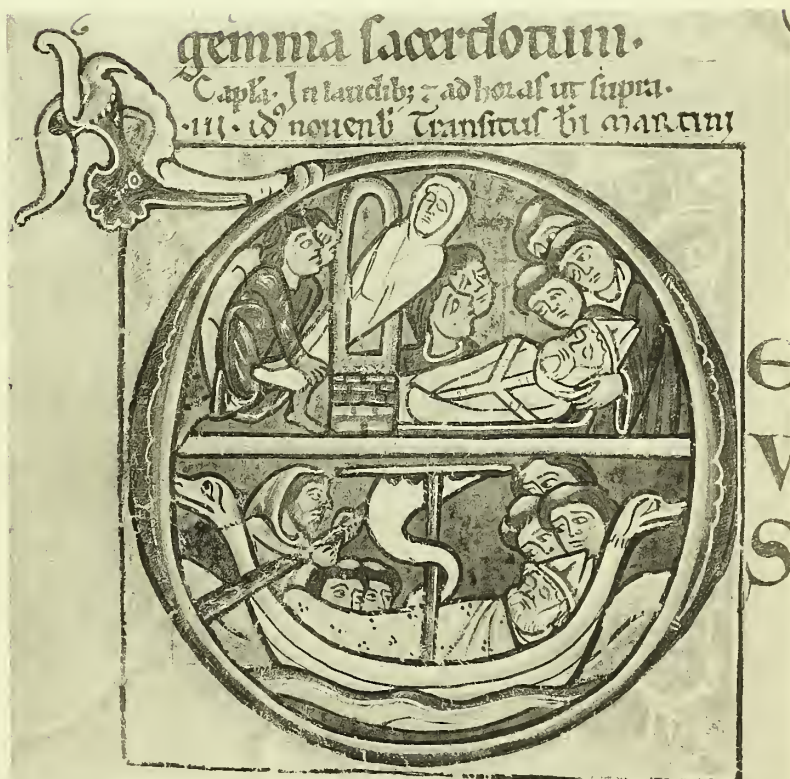 gemma sacerdotum.
Capla. In laudib; ⁊ ad horas ut supra.
.III. id' nouenb' Transitus bi martini
E
V
S